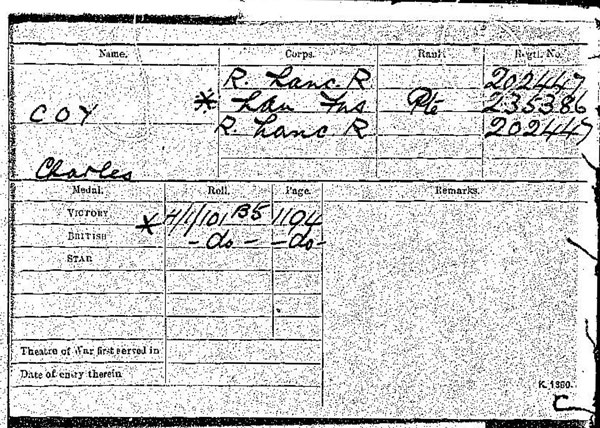 Name. Corps. Rank. Regtl. No.
R. Lanc R. 202447
COY * Lan Fus Pte 235386
R. Lanc R 202447
Charles
Medal. Roll. Page. Remarks.
VICTORY * H/1/101 B5 1104
BRITISH - do - - do -
STAR
Theatre of War first served in
Date of entry therein
K. 1380.
C